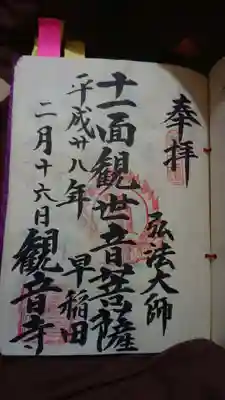 奉拝
弘法大師
十一面観世音菩薩
早稲田
観音寺
平成廿八年
二月十六日